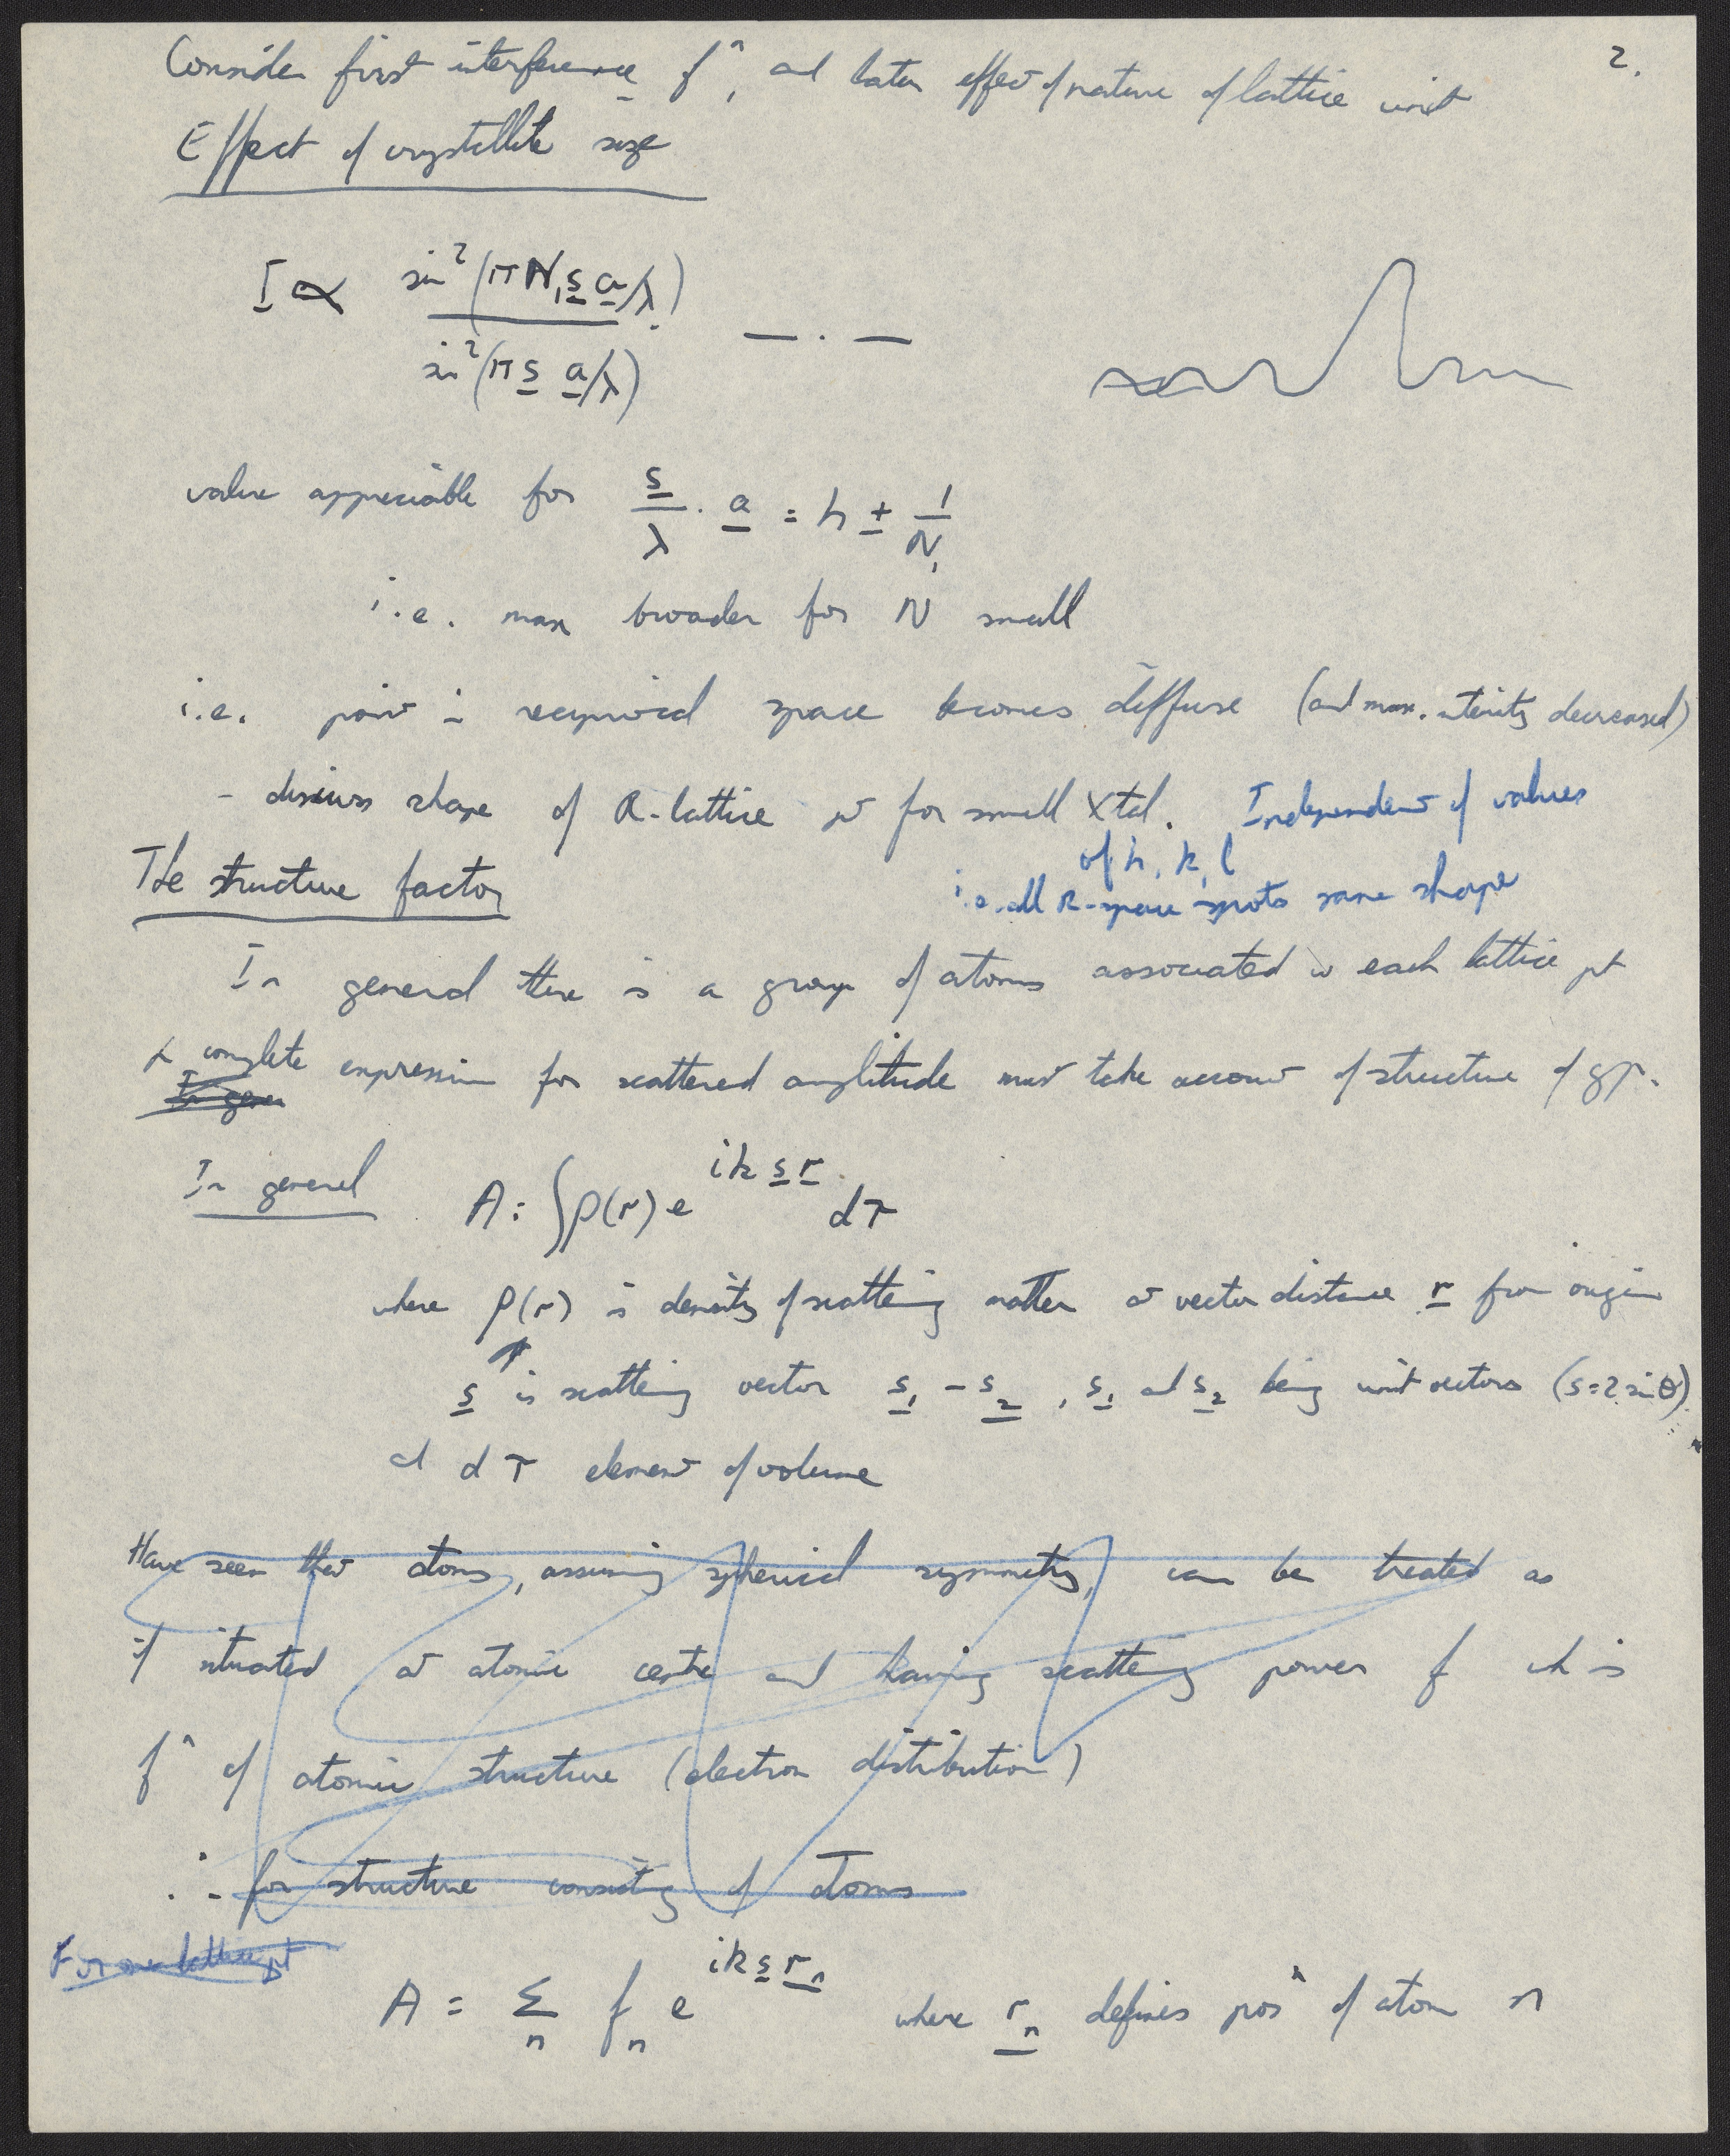 2.
Consider first interference fⁿ, and later effect of nature of lattice unit
Effect of crystallite size
I ∝ sin²(πN₁s a/λ)
sin²(π s a/λ)
— . —
value appreciable for s/λ . a = h ± 1/N₁
i.e. max broader for N small
i.e. point in reciprocal space becomes diffuse (and max. intensity decreased)
- discuss shape of R-lattice pt for small Xtal. Independent of values
of h, k, l
i.e. all R-space spots same shape
The structure factor
In general there is a group of atoms associated w each lattice pt
& complete expression for scattered amplitude must take account of structure of gp.
In gener
In general A = ∫ρ(r) e^{ik s r} dτ
where ρ(r) is density of scattering matter at vector distance r from origin
s is scattering vector s₁ - s₂ , s₁ and s₂ being unit vectors (s=2 sin θ)
and dτ element of volume
Have seen that atoms, assuming spherical symmetry, can be treated as
if situated at atomic centre and having scattering power f wh is
fⁿ of atomic structure (electron distribution)
∴ for structure consisting of atoms
For one lattice pt
A = Σₙ fₙ e^{ik s rₙ} where rₙ defines posⁿ of atom n